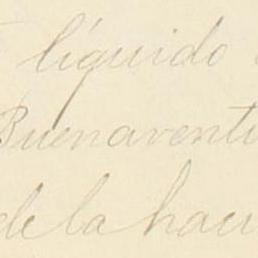 líquido
Buenaventu
de la haci